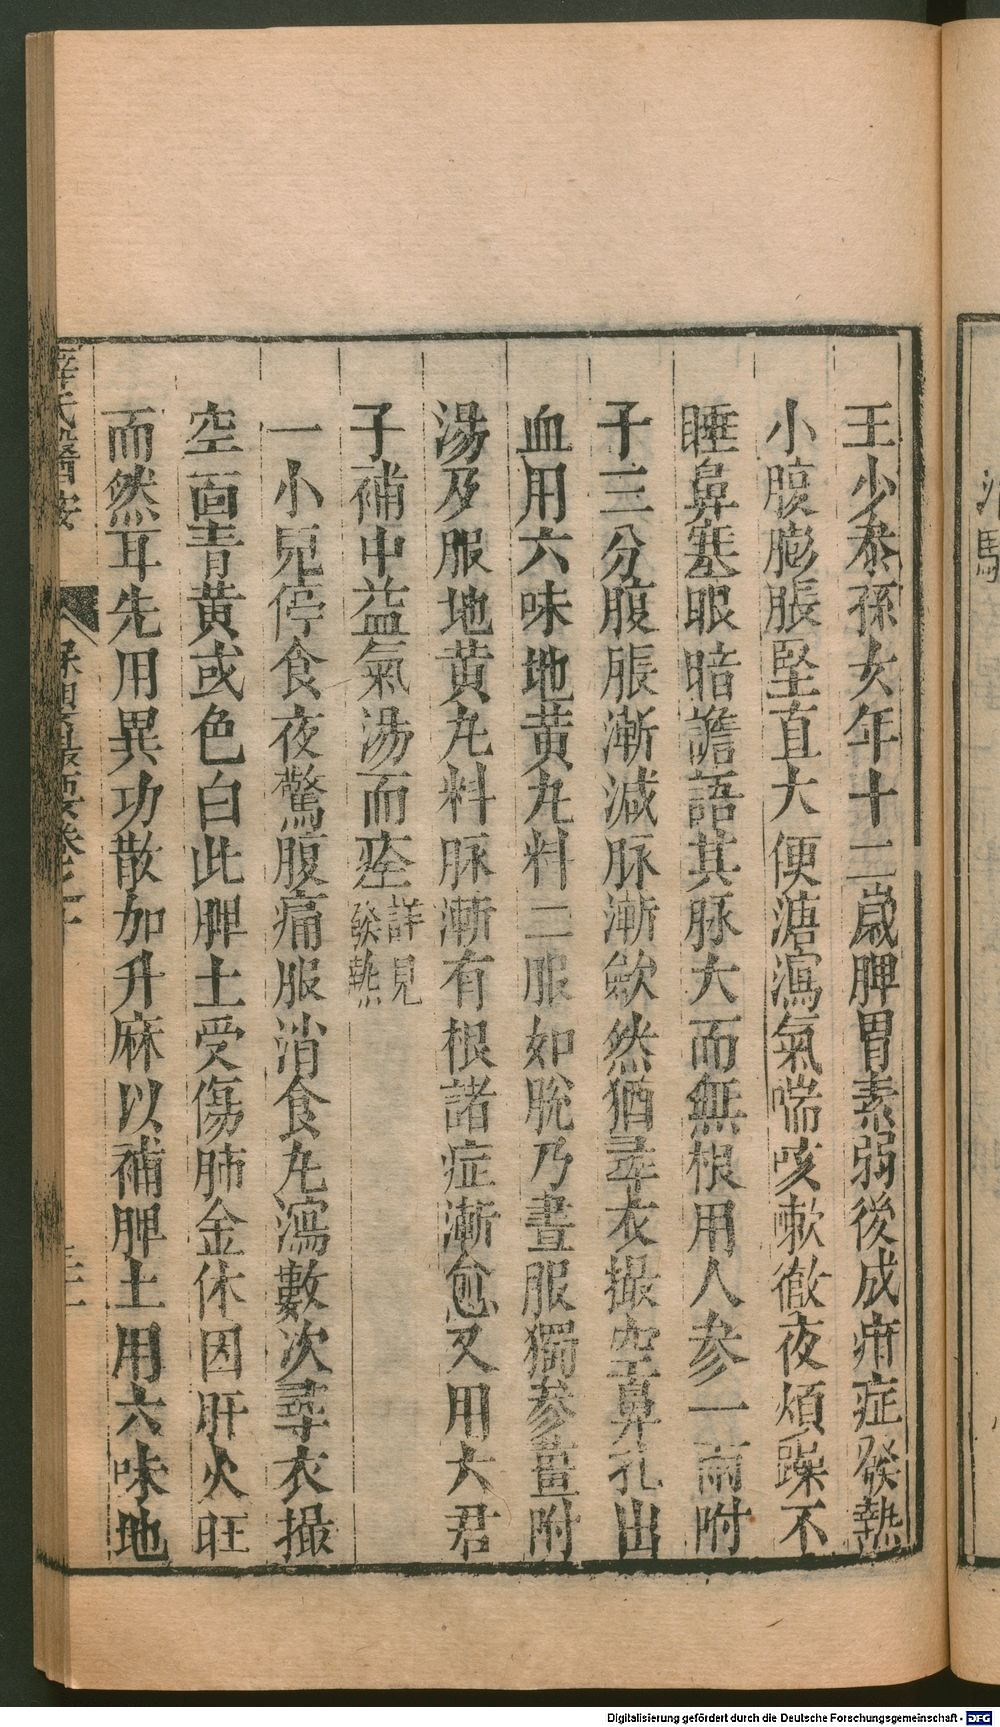 王少叅孫女年十二歲脾胃素弱後成疳症發熱
小腹膨脹堅直大便溏瀉氣喘咳嗽徹夜煩躁不
睡鼻塞眼暗譫語其脉大而無根用人參一兩附
子三分腹脹漸減脉漸歛然猶尋衣撮空鼻孔出
血用六味地黄丸料二服如脫乃晝服獨參薑附
湯及服地黄丸料脉漸有根諸症漸愈又用六君
子補中益氣湯而痊詳見發熱
一小兒停食夜驚腹痛服消食丸瀉數次尋衣撮
空面青黄或色白此脾土受傷肺金休因肝火旺
而然耳先用異功散加升麻以補脾土用六味地
薛氏醫按 保嬰撮要卷之十
Digitalisierung gefördert durch die Deutsche Forschungsgemeinschaft - DFG